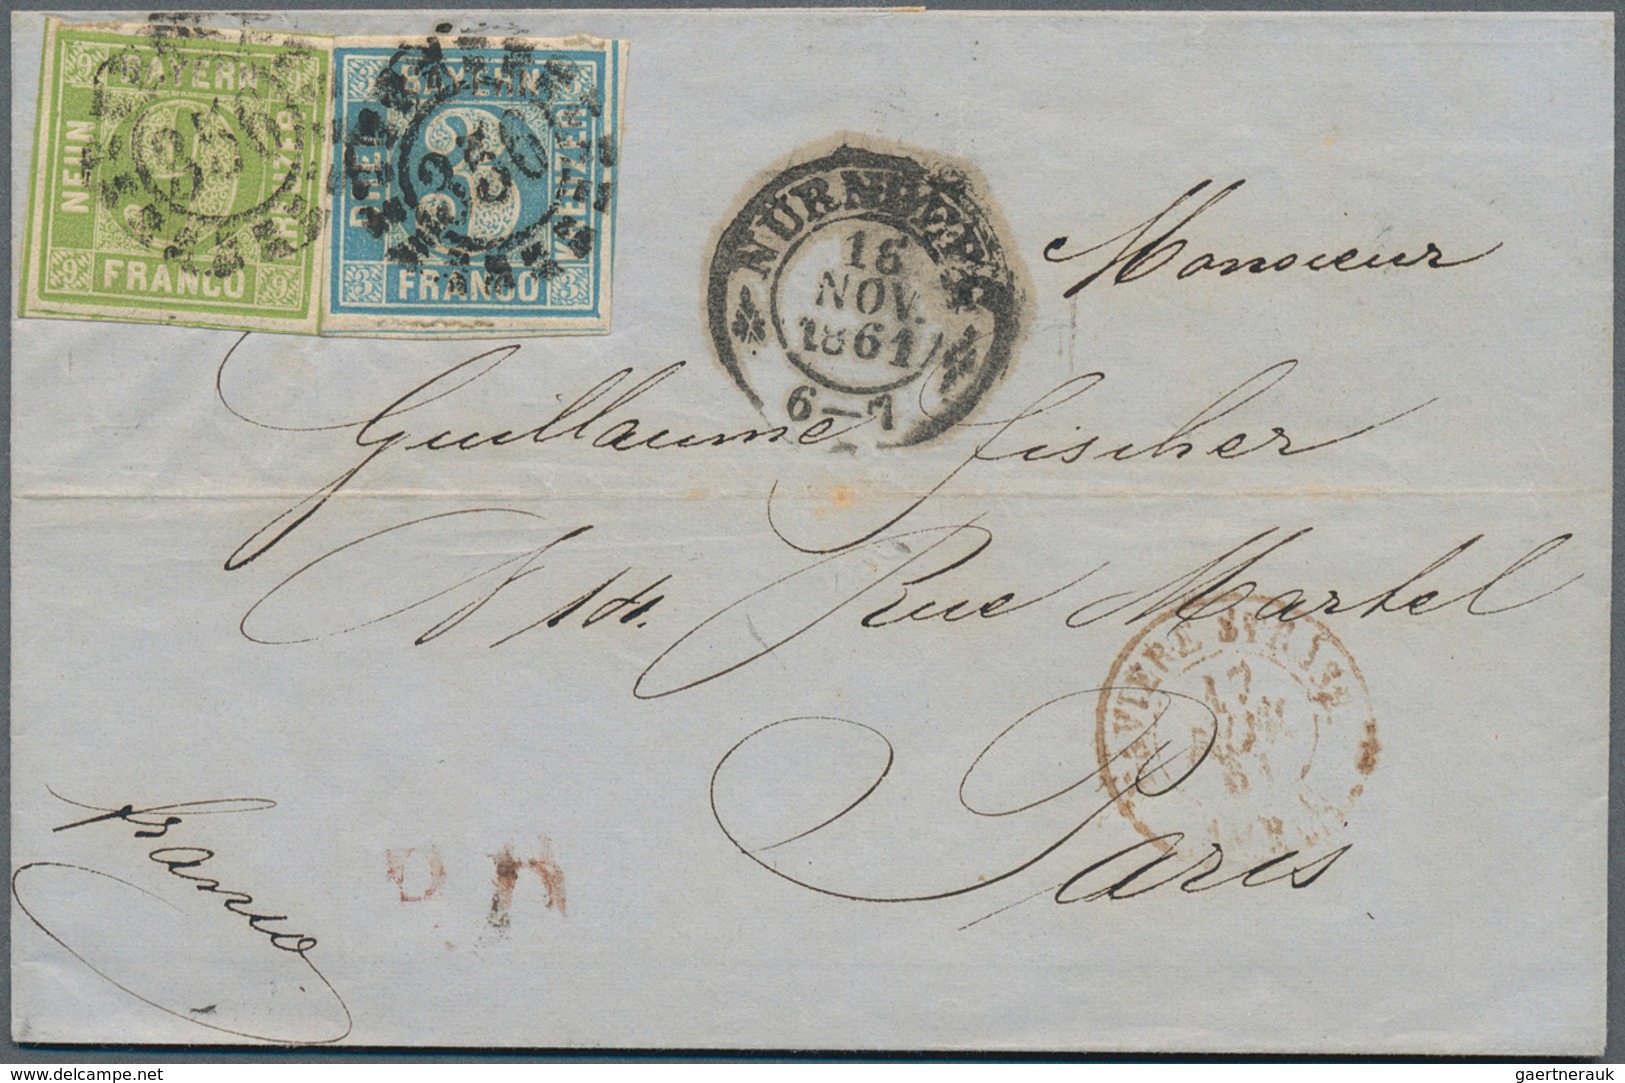 BAYERN
NEUN
KREUZER
FRANCO
9
9
9
356
BAYERN
DREI
KREUZER
FRANCO
3
3
3
356
NÜRNBERG
16
NOV.
1861
6-7
Monsieur
Guillaume Fischer
N 14. Rue Martel
Paris
franco
17
P.D.
gaertnerauk